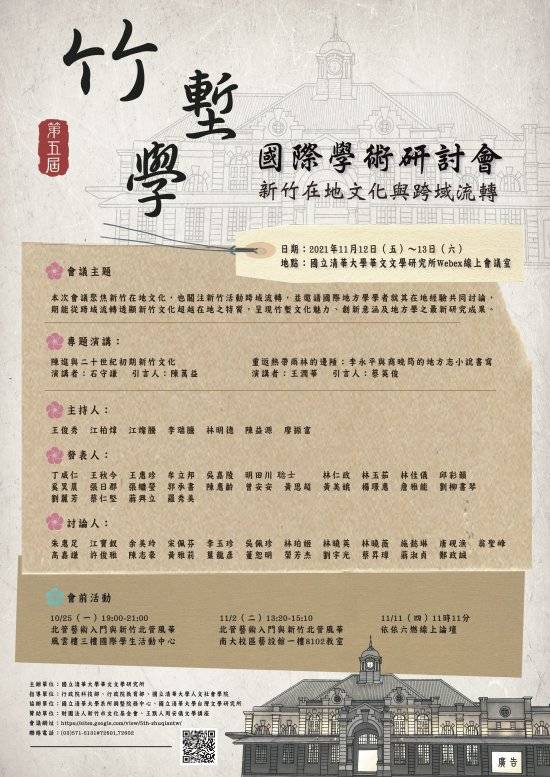 竹塹學
第五屆
國際學術研討會
新竹在地文化與跨域流轉
日期：2021年11月12日（五）～13日（六）
地點：國立清華大學華文文學研究所Webex線上會議室
會議主題
本次會議聚焦新竹在地文化，也關注新竹活動跨域流轉，並邀請國際地方學學者就其在地經驗共同討論，
期能從跨域流轉透顯新竹文化超越在地之特質，呈現竹塹文化魅力、創新意涵及地方學之最新研究成果。
專題演講：
陳進與二十世紀初期新竹文化
演講者：石守謙　引言人：陳萬益
重返熱帶雨林的邊陲：李永平與商晚筠的地方志小說書寫
演講者：王潤華　引言人：蔡英俊
主持人：
王俊秀　江柏煒　江燦騰　李瑞騰　林明德　陳益源　廖振富
發表人：
丁威仁　王秋今　王惠珍　牟立邦　吳嘉陵　明田川聡士　林仁政　林玉茹　林佳儀　邱彩韻
吳昊晨　張日郡　張繼瑩　郭承喜　陳惠齡　曾安安　黃思超　黃美娥　楊璟惠　詹雅能　劉柳書琴
劉麗芳　蔡仁堅　蔣興立　羅秀美
討論人：
朱惠足　江寶釵　余美玲　宋佩芬　李玉珍　吳佩珍　林珀姬　林曉英　林曉薇　施懿琳　唐硯漁　翁聖峰
高嘉謙　許俊雅　陳志豪　黃雅莉　葉龍彥　董恕明　榮芳杰　劉宇光　蔡昇璋　蔣淑貞　鄭政誠
會前活動
10/25（一）19:00-21:00
北管藝術入門與新竹北管風華
風雲樓三樓國際學生活動中心
11/2（二）13:20-15:10
北管藝術入門與新竹北管風華
南大校區藝設館一樓8102教室
11/11（四）11時11分
依依六燃線上論壇
主辦單位：國立清華大學華文文學研究所
指導單位：行政院科技部、行政院教育部、國立清華大學人文社會學院
協辦單位：國立清華大學系所調整院務中心、國立清華大學台灣文學研究所
贊助單位：財團法人新竹市文化基金會、王默人周安儀文學講座
會議網址：https://sites.google.com/view/5th-zhuqianxtw/
聯絡電話：(03)571-5131#72601,72602
廣告